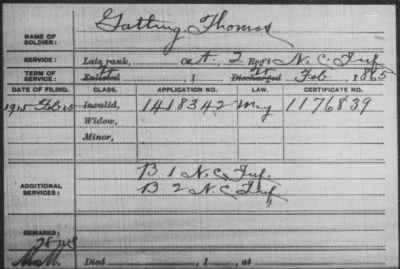 NAME OF SOLDIER: Gatling, Thomas
SERVICE: Late rank, Co. A, 2 Reg't N.C. Inf.
TERM OF SERVICE: Enlisted , 1 Discharged Feb , 1865
DATE OF FILING. CLASS. APPLICATION NO. LAW. CERTIFICATE NO.
1915 Feb 15 Invalid, 1418342 May 1176839
Widow,
Minor,
ADDITIONAL SERVICES: B 1 N.C. Inf.
B 2 N.C. Inf,
REMARKS:
Died , 1 , at